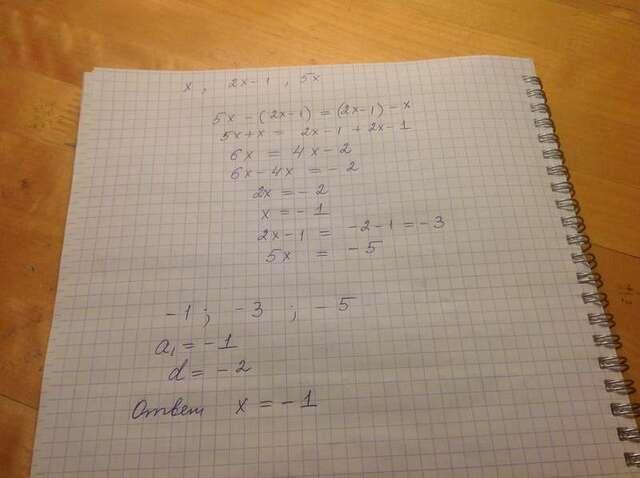 x ; 2x-1 ; 5x
5x - (2x-1) = (2x-1) - x
5x+x = 2x-1 + 2x-1
6x = 4x-2
6x-4x = -2
2x = -2
x = -1
2x-1 = -2-1 = -3
5x = -5
-1 ; -3 ; -5
a₁ = -1
d = -2
Ответ x = -1